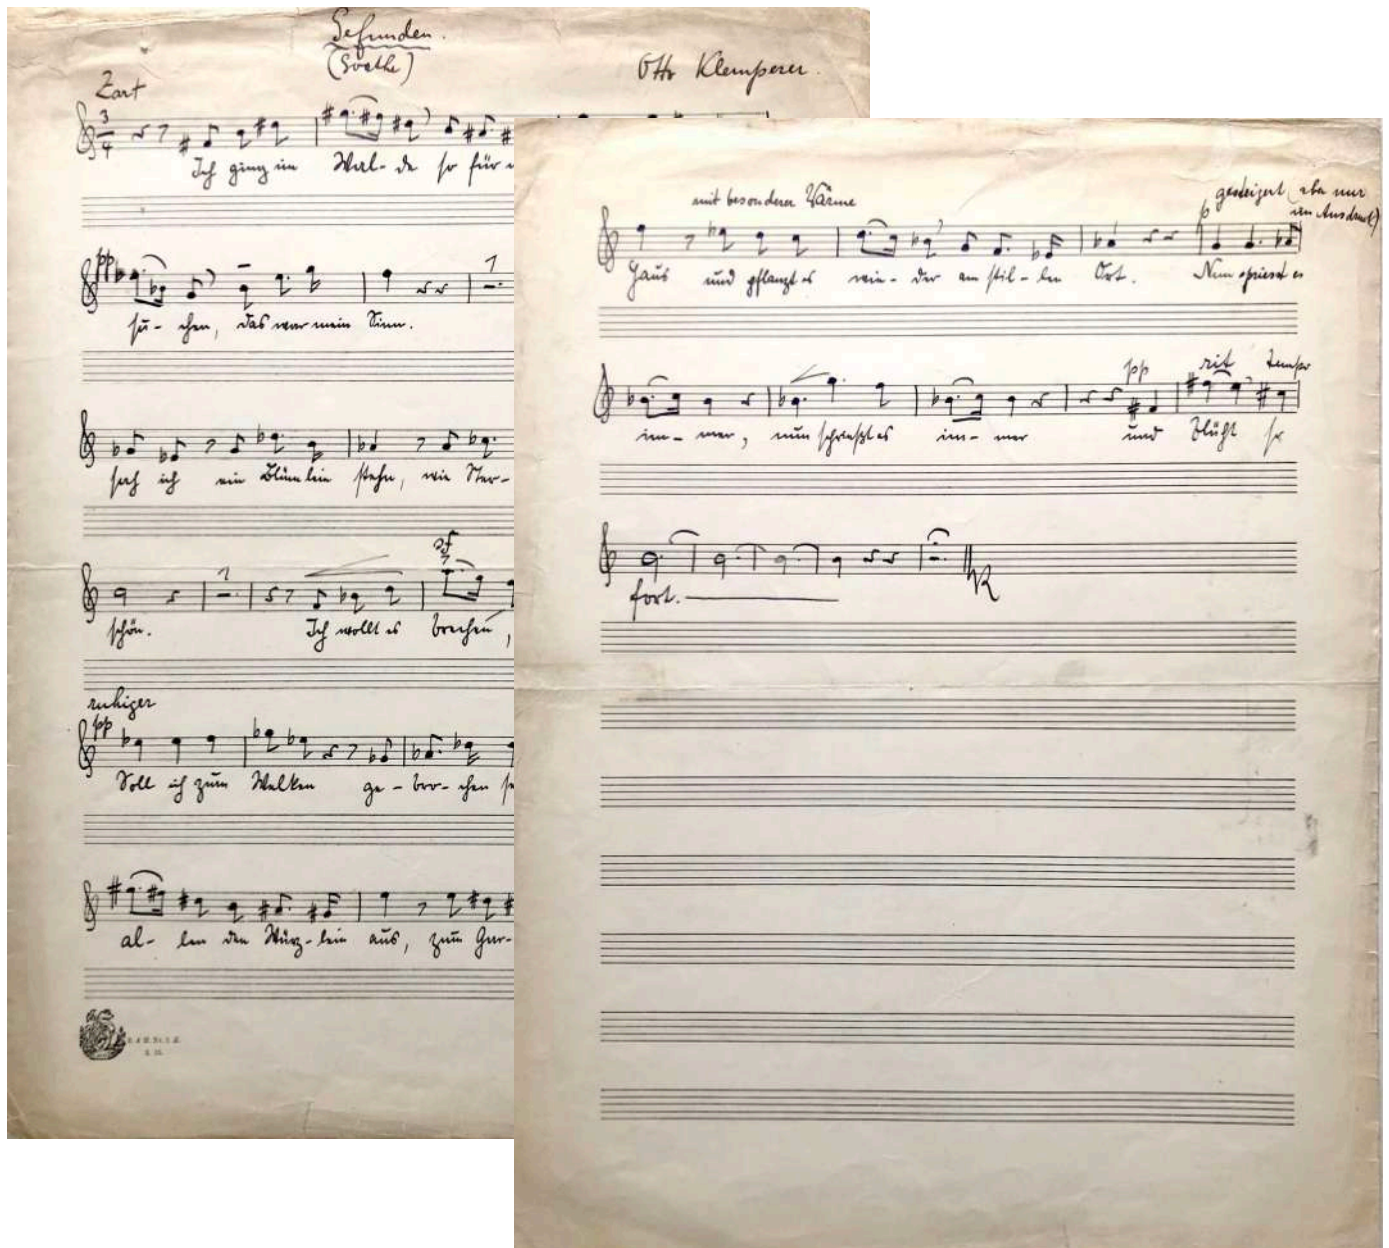 Gefunden.
(Goethe)
Otto Klemperer.
Zart
3
4
Ich ging im Wal- de so für
pp
su- chen, das war mein Sinn.
sah ich ein Blümlein stehn, wie Ster-
sf
schön. Ich wollt es brechen,
ruhiger
pp
Soll ich zum Welken ge- bro- chen
al- len den Würz- lein aus, zum Gar-
mit besonderer Wärme
gesteigert (aber nur
im Ausdruck)
p
Haus und pflanzt es wie- der am stil- len Ort. Nun spriesst es
pp rit Tempo
im- mer, nun spriesst es im- mer und blüht so
fort.